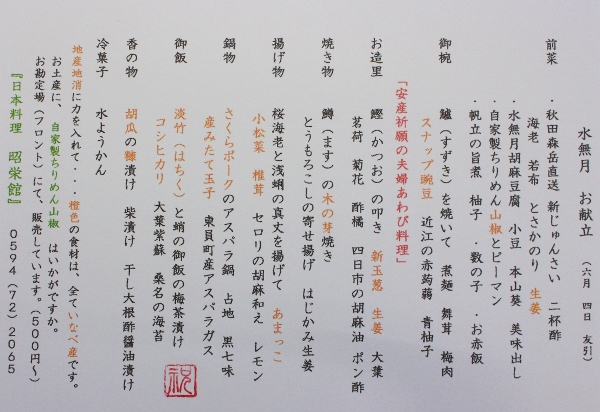 水無月 お献立 （六月 四日 友引）
前菜 ・秋田森岳直送 新じゅんさい 二杯酢
海老 若布 とさかのり 生姜
・水無月胡麻豆腐 小豆 本山葵 美味出し
・自家製ちりめん山椒とピーマン
・帆立の旨煮 柚子 ・数の子 ・お赤飯
御椀 鱸（すずき）を焼いて 煮麺 舞茸 梅肉
スナップ豌豆 近江の赤蒟蒻 青柚子
「安産祈願の夫婦あわび料理」
お造里 鰹（かつお）の叩き 新玉葱 生姜 大葉
茗荷 菊花 酢橘 四日市の胡麻油 ポン酢
焼き物 鱒（ます）の木の芽焼き
とうもろこしの寄せ揚げ はじかみ生姜
揚げ物 桜海老と浅蜊の真丈を揚げて あまっこ
小松菜 椎茸 セロリの胡麻和え レモン
鍋物 さくらポークのアスパラ鍋 占地 黒七味
産みたて玉子 東員町産アスパラガス
御飯 淡竹（はちく）と蛸の御飯の梅茶漬け
コシヒカリ 大葉紫蘇 桑名の海苔
香の物 胡瓜の糠漬け 柴漬け 干し大根酢醤油漬け
冷菓子 水ようかん
祝
地産地消に力を入れて・・・橙色の食材は、全ていなべ産です。
お土産に、自家製ちりめん山椒 はいかがですか。
お勘定場（フロント）にて、販売しています。（５００円～）
『日本料理 昭栄館』 ０５９４（７２）２０６５